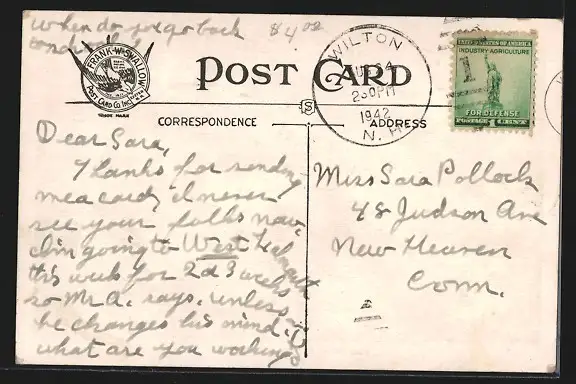 when do you go back 8 4 02
to
FRANK W. SWALLOW
POST CARD Co. Inc.
TRADE MARK
POST CARD
WILTON
24
2 30 PM
1942
N. H.
UNITED STATES OF AMERICA
INDUSTRY AGRICULTURE
1
FOR DEFENSE
POSTAGE 1 CENT
CORRESPONDENCE
ADDRESS
Dear Sara,
Thanks for sending
me a card, I never
see your folks now,
I'm going to West
this week for 2 or 3 weeks
so Mr. A. says, unless
he changes his mind.
what are you working
Miss Sara Pollock
48 Judson Ave
New Heaven
Conn.